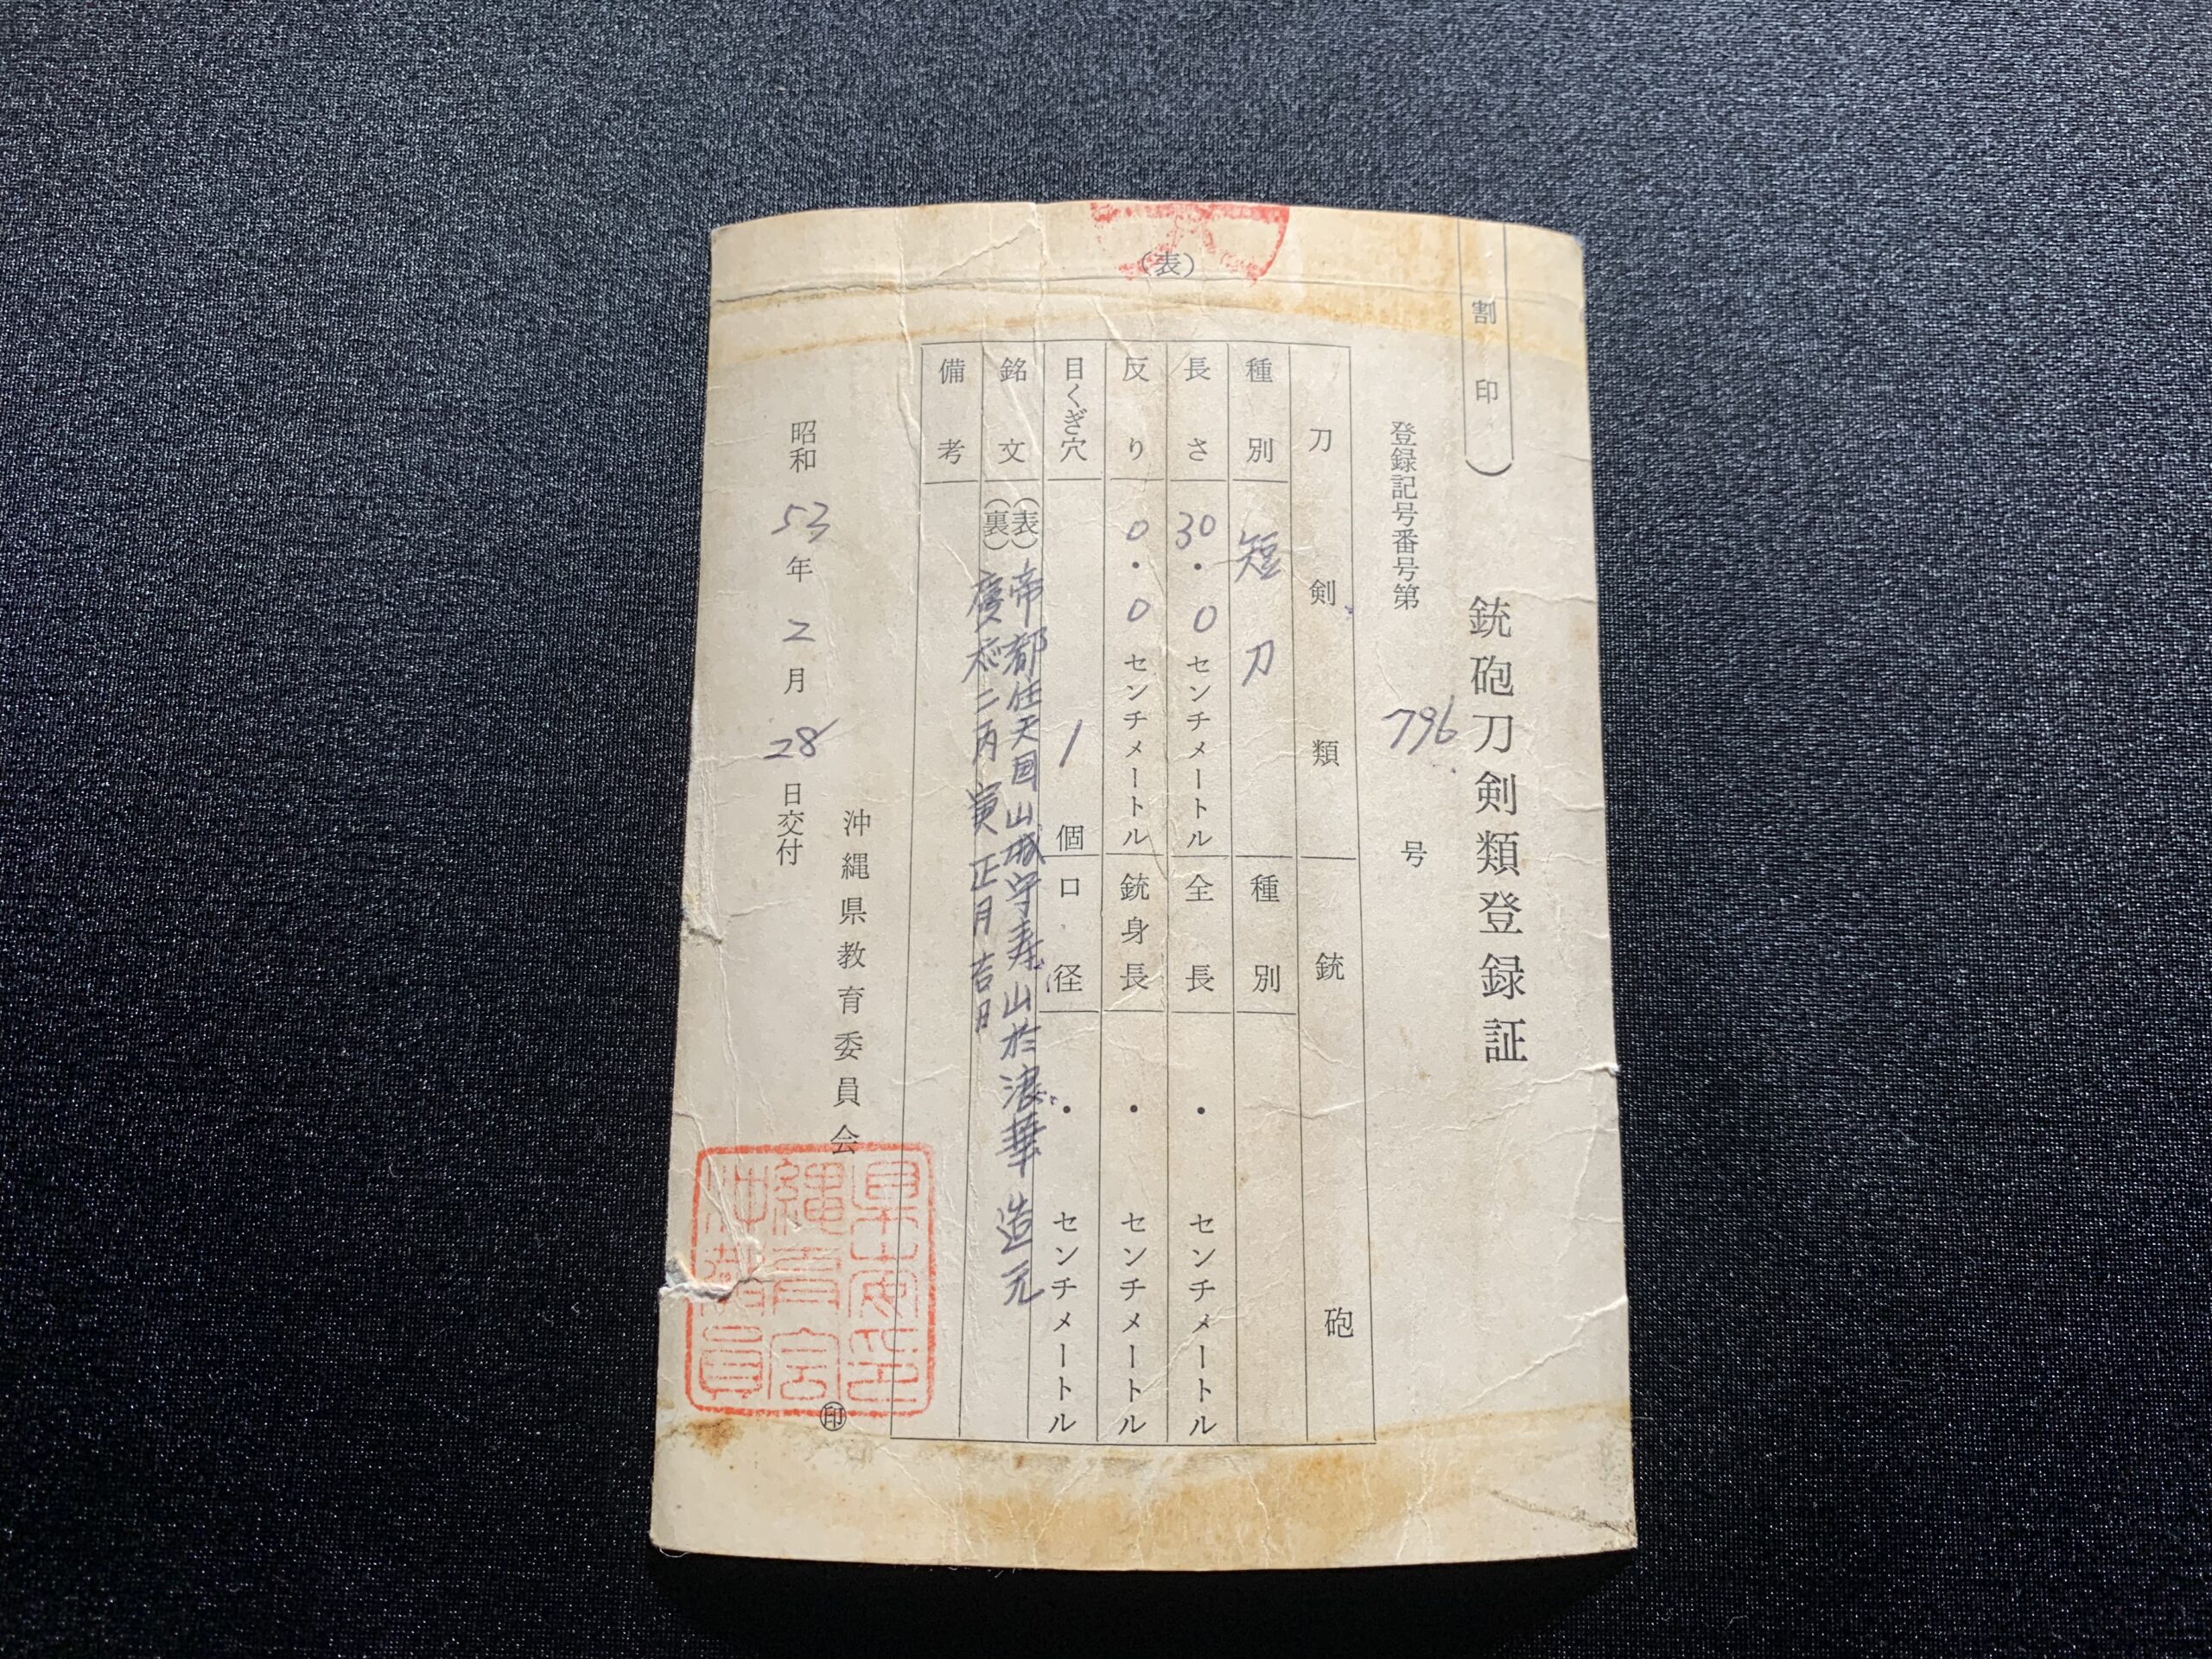 (表)
割印)
銃砲刀剣類登録証
登録記号番号第 796 号
刀剣類 銃砲
種別 短刀 種別
長さ 30.0センチメートル 全長 ・ センチメートル
反り 0.0センチメートル 銃身長 ・ センチメートル
目くぎ穴 1個 口径 ・ センチメートル
銘文 (表)帝都住天国山城守寿山於浪華造元
(裏)慶応二丙寅正月吉日
備考
沖縄県教育委員会 ㊞
昭和53年2月28日交付